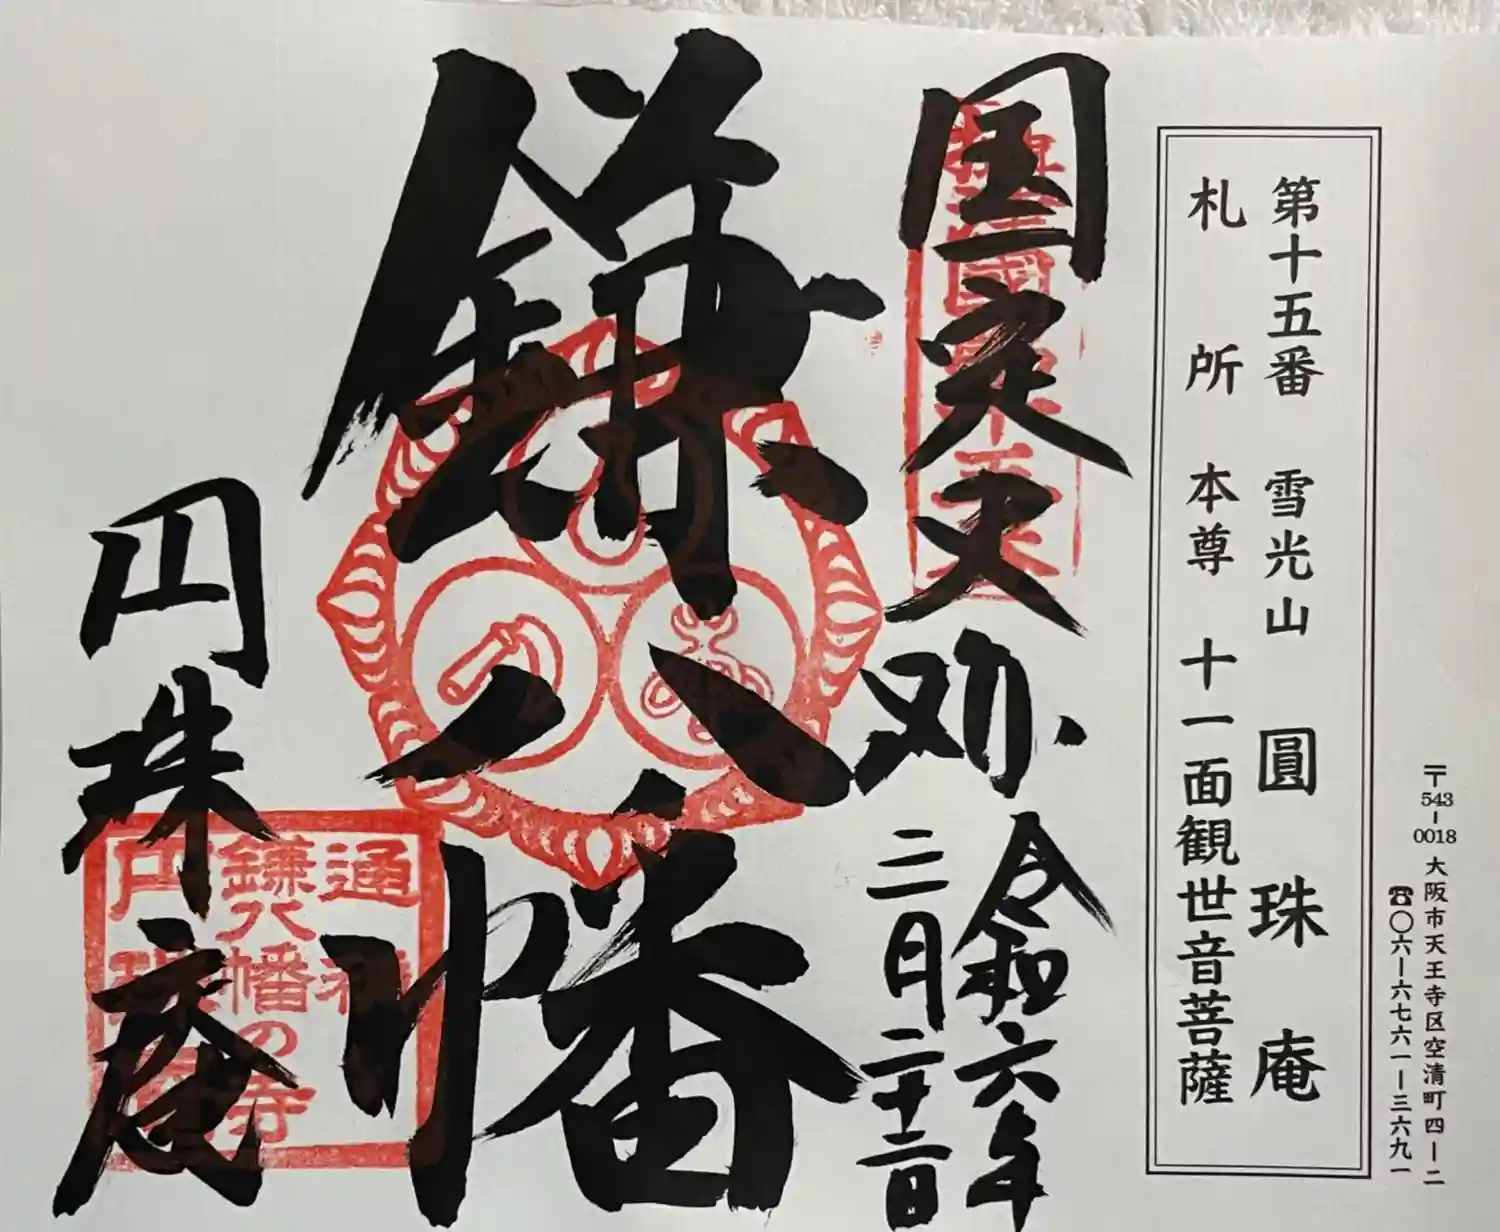 〒543-0018 大阪市天王寺区空清町四ー二
☎〇六ー六七六一ー三六九一
第十五番 雪光山 圓珠庵
札所本尊 十一面観世音菩薩
国定史跡
令和六年
二月二十二日
鎌八幡
円珠庵
通称
鎌八幡の寺
円珠庵